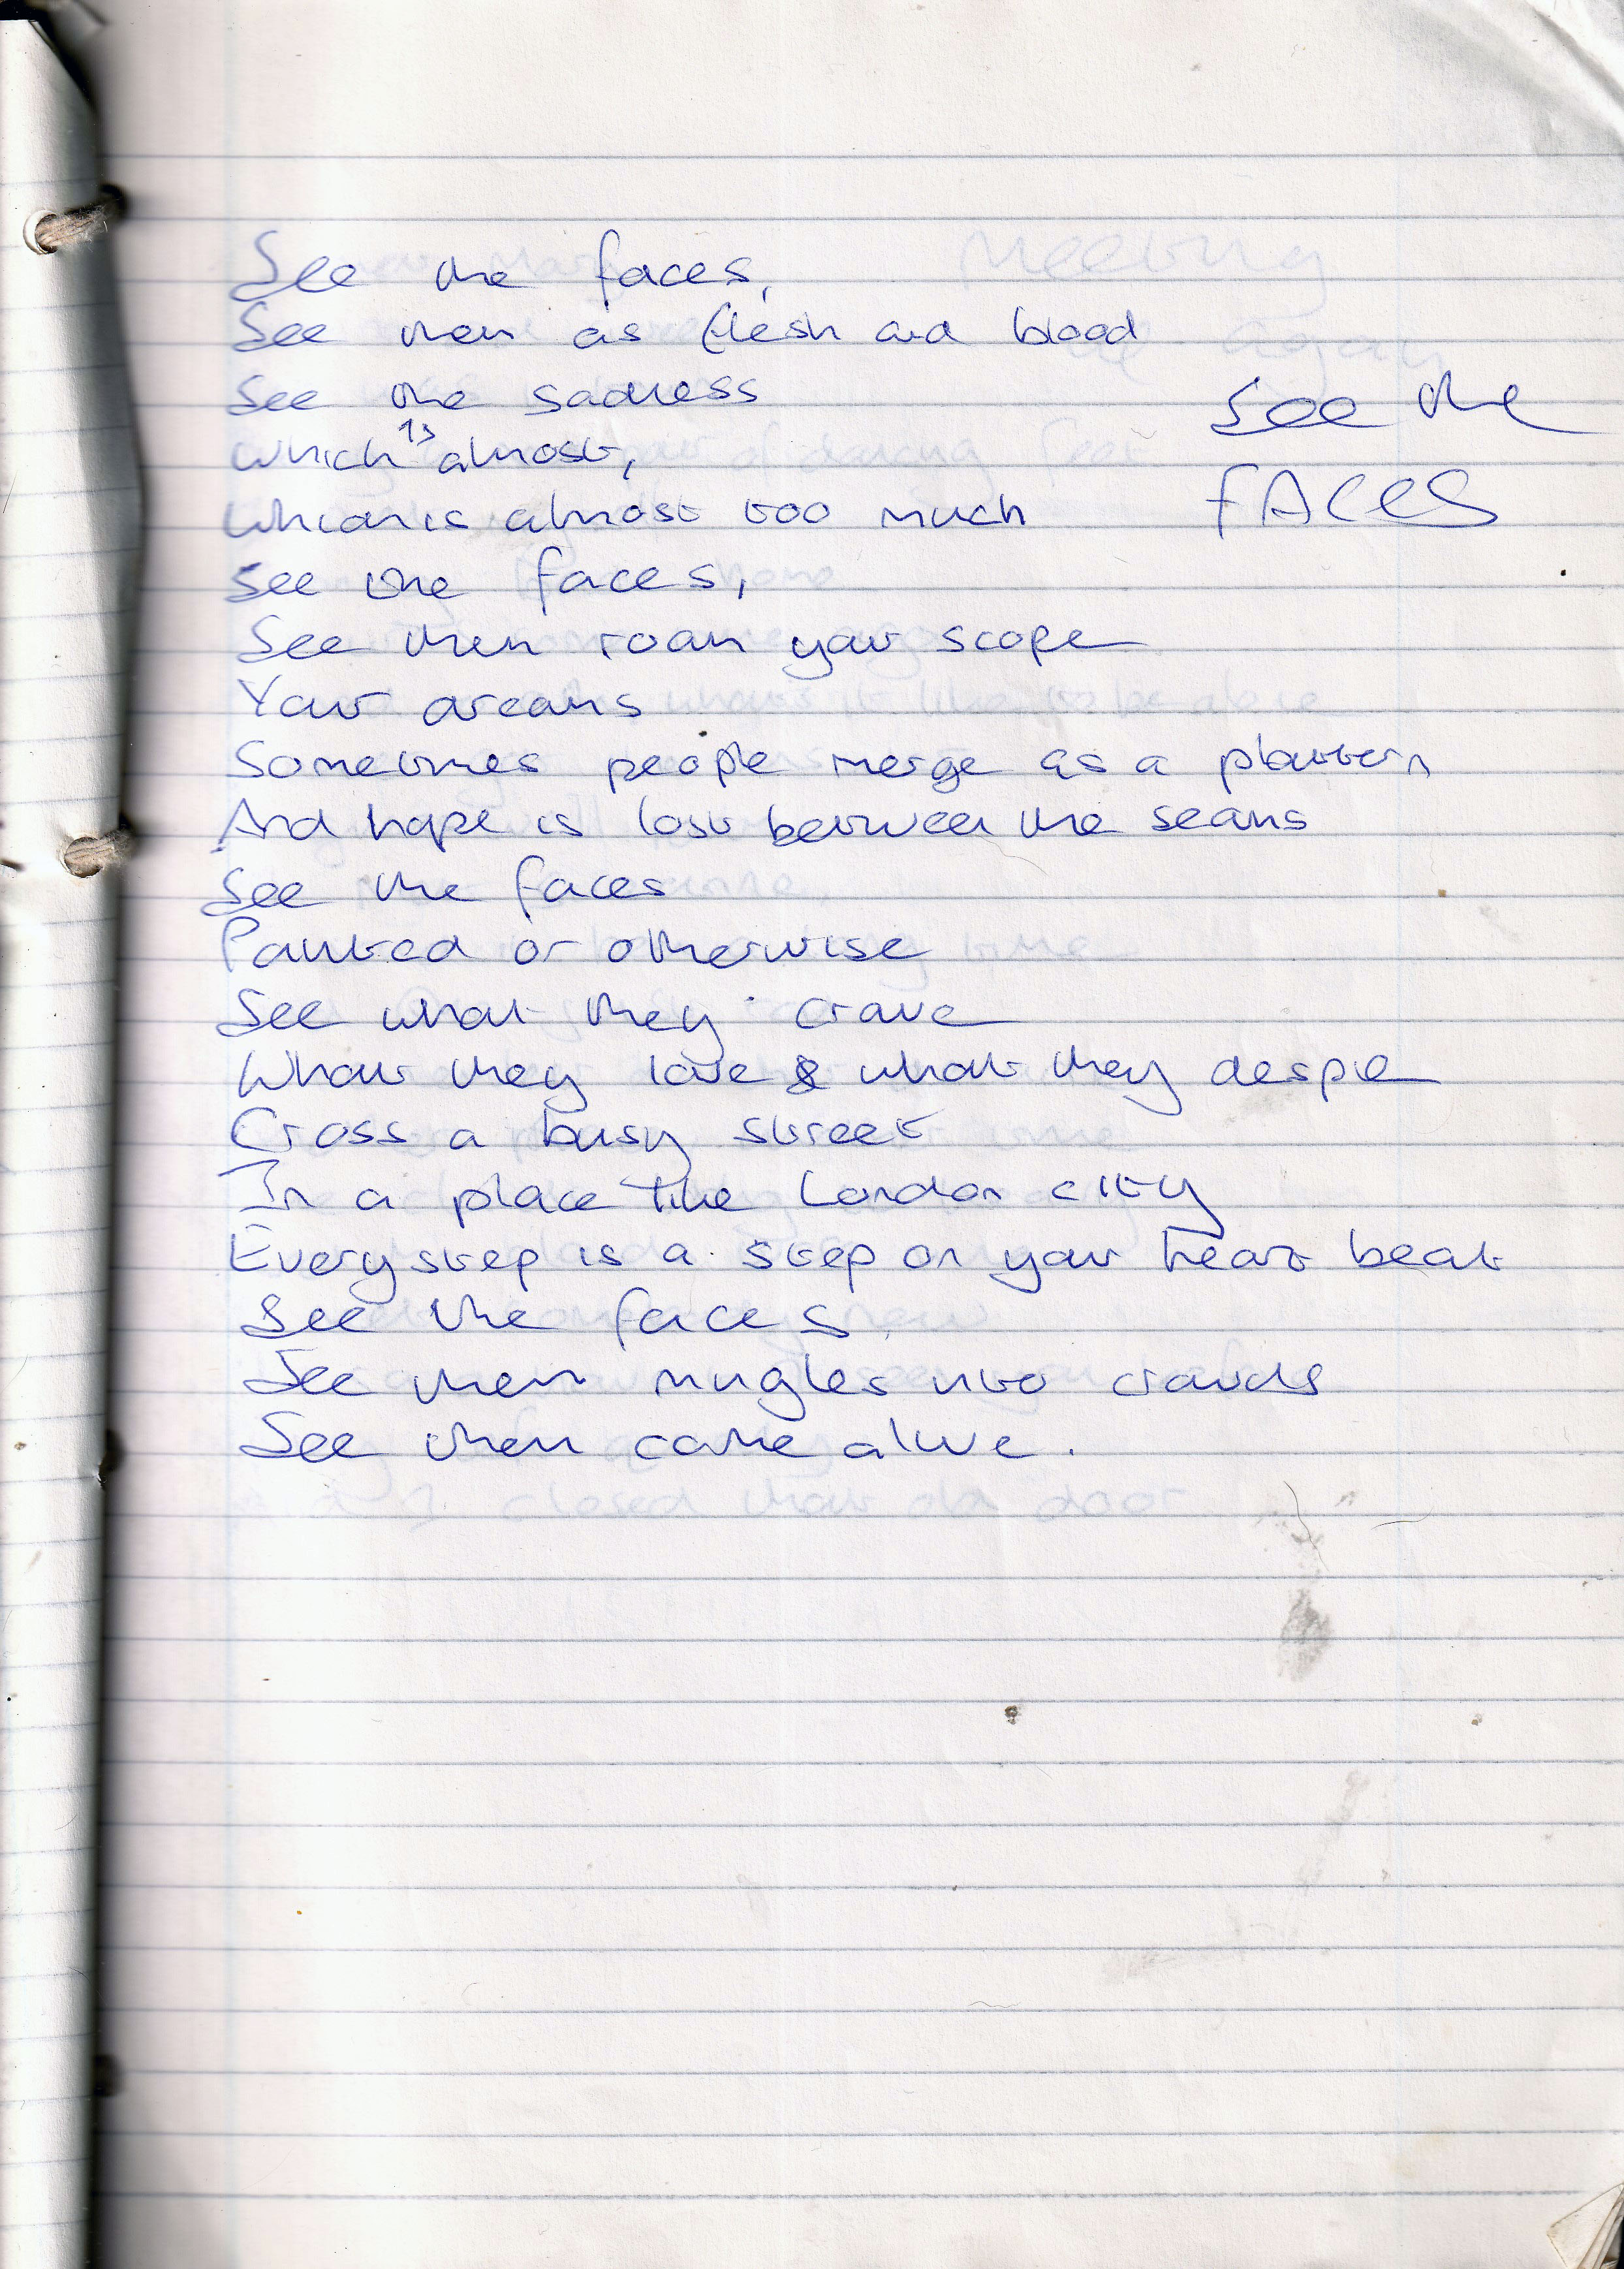 See the faces,
See them as flesh and blood
See the sadness
which is almost,
which is almost too much
See the
FACES
See the faces,
See them roam your scope
Your dreams
Sometimes people merge as a plattern
And hope is lost between the seams
See the faces
Painted or otherwise
See what they crave
What they love & what they despie
Cross a busy street
In a place like London city
Every step is a step on your heart beat
See the faces
See them mingles into crowds
See them come alive.